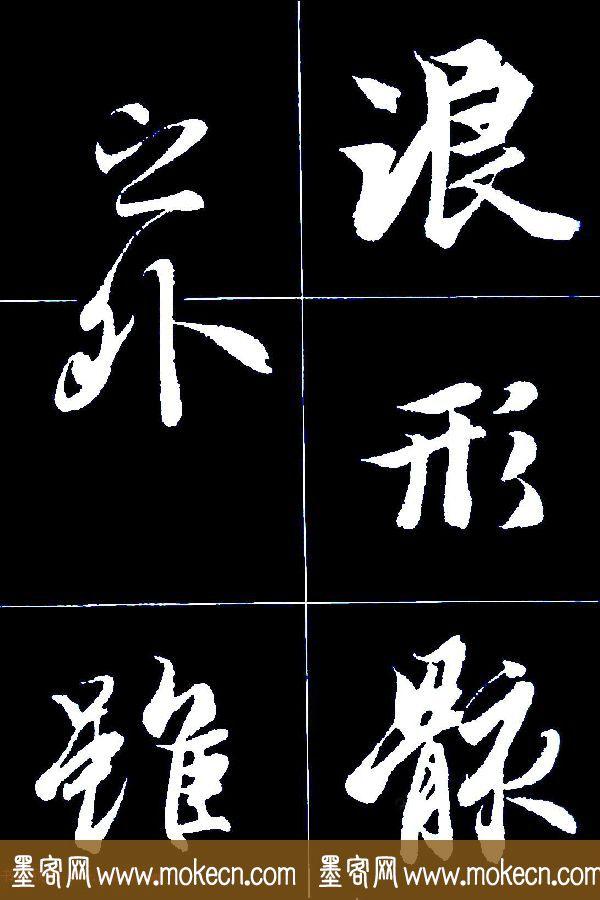 浪形骸
之外雖
墨客网 www.mokecn.com 墨客网 www.mokecn.com